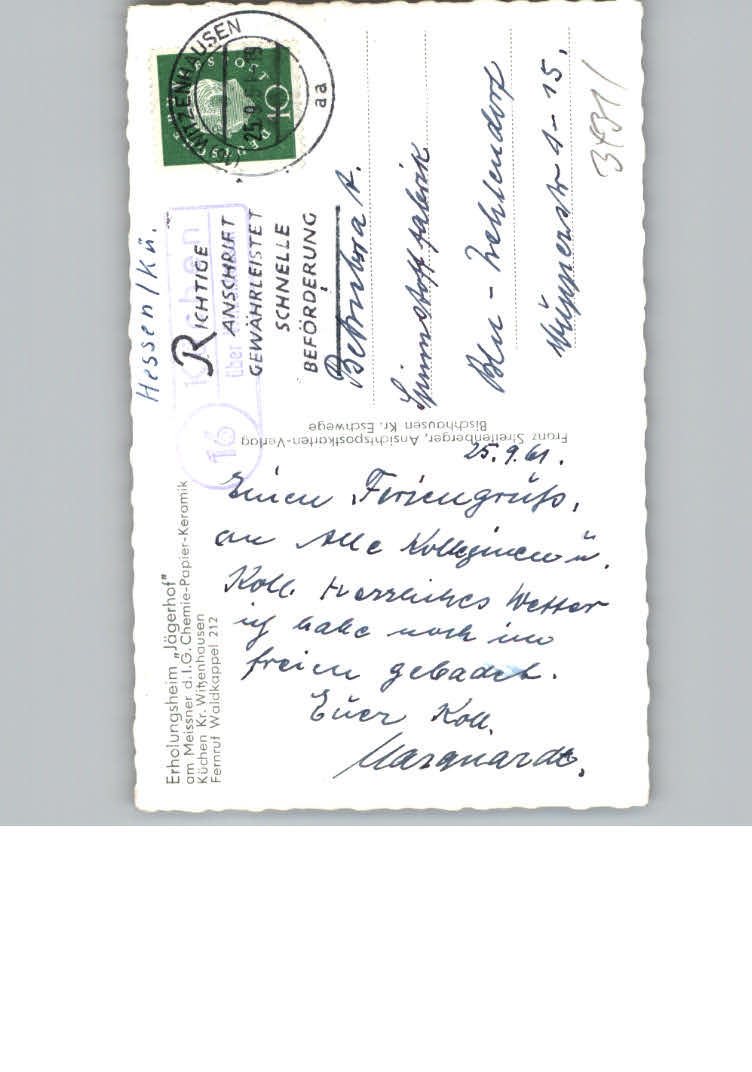 Erholungsheim „Jägerhof"
am Meissner d. I.G. Chemie-Papier-Keramik
Küchen Kr. Witzenhausen
Fernruf Waldkappel 212
25.9.61.
Einen Feriengruß,
an Alle Kolleginen u.
Koll. Herrliches Wetter
ich habe noch im
freien gebadet.
Euer Koll.
Marquardt.
Franz Streifenberger, Ansichtspostkarten-Verlag
Bischhausen Kr. Eschwege
Hessen/Kü.
16
Küchen
über
WITZENHAUSEN
25.9.61
aa
DEUTSCHE BUNDESPOST
10
RICHTIGE
ANSCHRIFT
GEWÄHRLEISTET
SCHNELLE
BEFÖRDERUNG
Betriebsrat.
Spinnstofffabrik
Bln - Zehlendorf
Wupperstr 1-15.